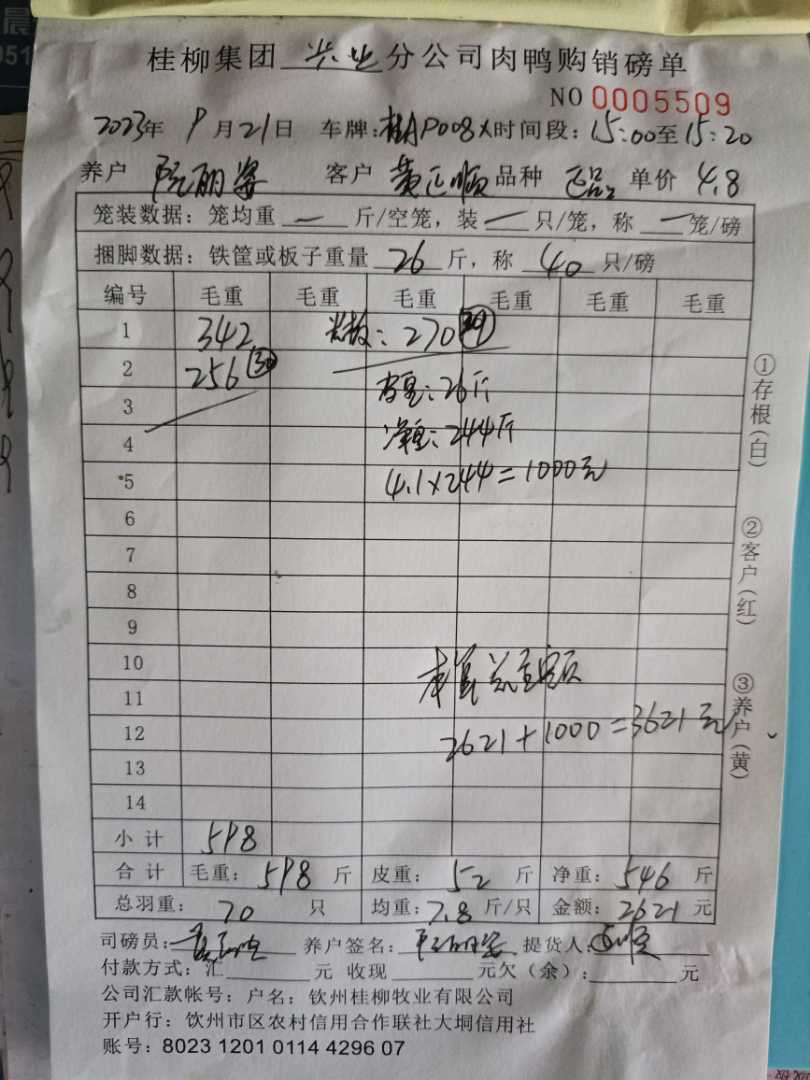 桂柳集团 兴业 分公司肉鸭购销磅单
NO 0005509
2023年 9月21日 车牌:桂AP008X 时间段:15:00至15:20
养户 阮丽 客户 黄正顺 品种 正品 单价 4.8
笼装数据:笼均重 — 斤/空笼,装 — 只/笼,称 — 笼/磅
捆脚数据:铁筐或板子重量 26 斤,称 40 只/磅
编号 毛重 毛重 毛重 毛重 毛重 毛重
1 342 : 270
2 256 30
皮重:26斤
3
净重:244斤
4
5 4.1×244=1000元
6
7
8
9
10 总金额
11
12 2621+1000=3621元
13
14
小计 598
合计 毛重:598 斤 皮重:52 斤 净重:546 斤
总羽重:70 只 均重:7.8 斤/只 金额:2621 元
司磅员: 养户签名: 提货人:
付款方式:汇 元 收现 元欠(余): 元
公司汇款帐号:户名:钦州桂柳牧业有限公司
开户行:钦州市区农村信用合作联社大垌信用社
账号:8023 1201 0114 4296 07
①存根(白)
②客户(红)
③养户(黄)